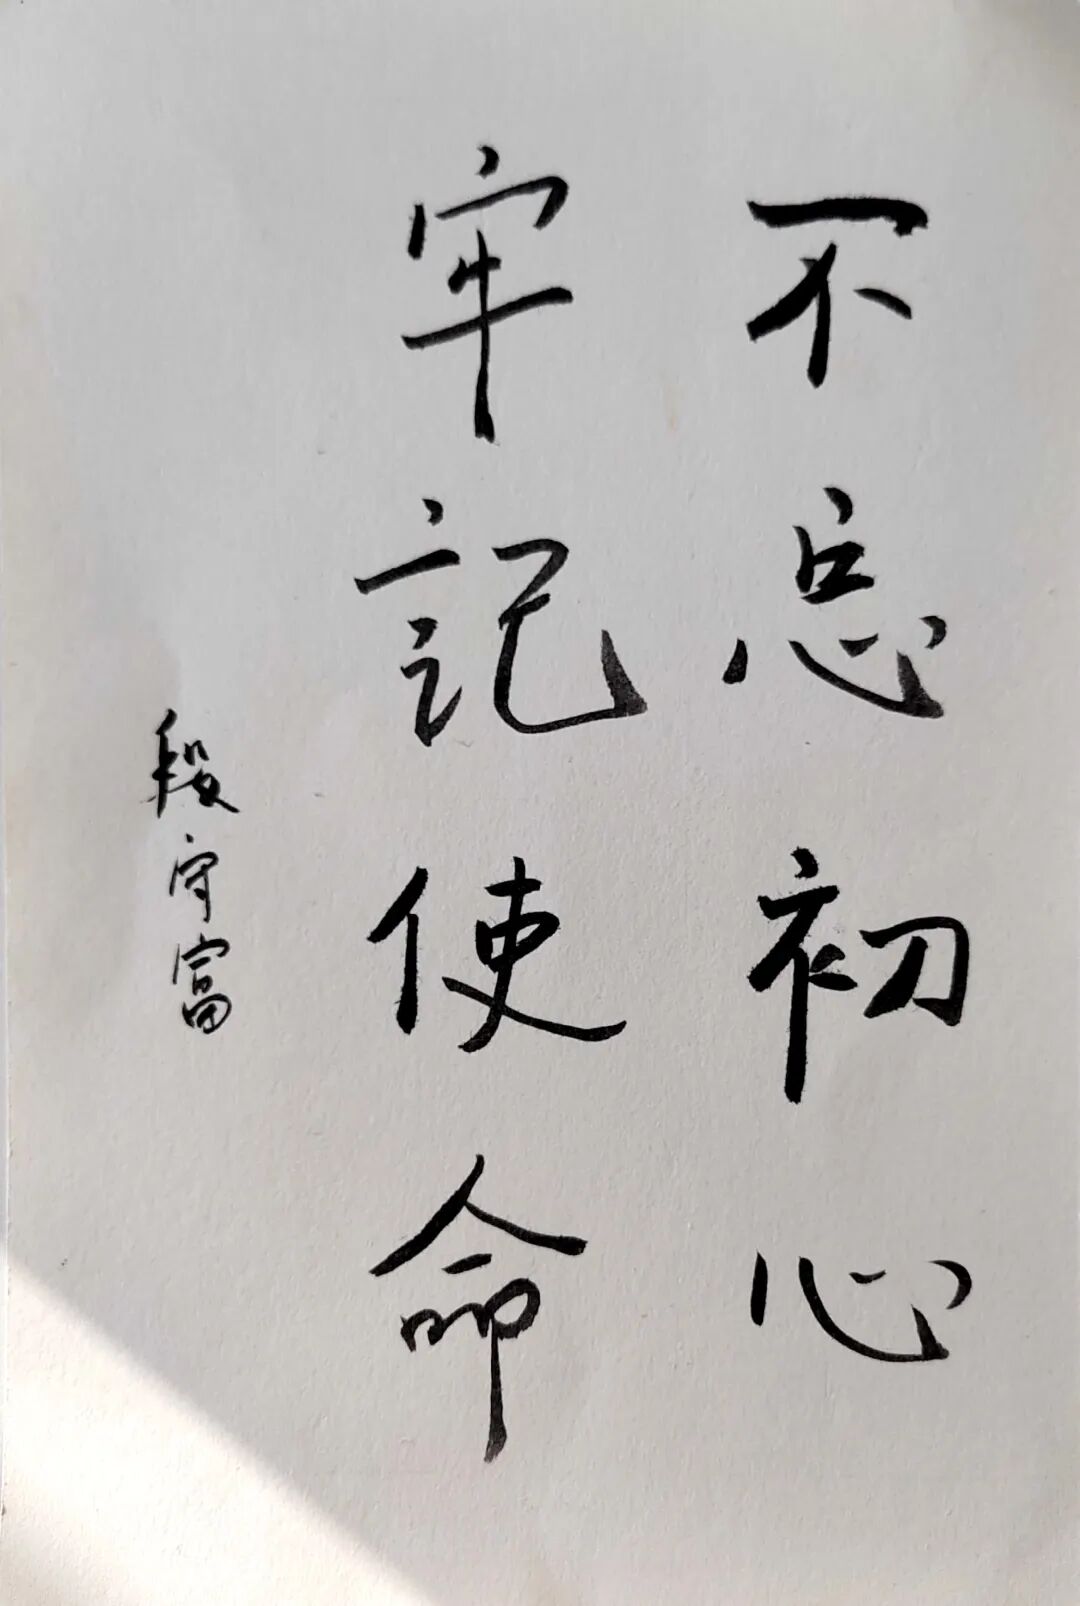 不忘初心
牢記使命
段守富